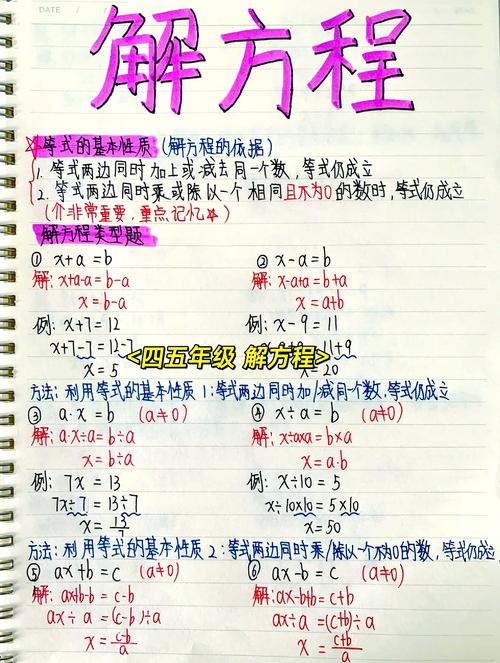 DATE / /
解方程
☆等式的基本性质 (解方程的依据)
1. 等式两边同时加上或减去同一个数,等式仍成立
2. 等式两边同时乘或除以一个相同且不为0的数时,等式仍成立
(介非常重要,重点记忆☆)
解方程类型题
① x+a=b ② x-a=b
解: x+a-a=b-a 解: x-a+a=b+a
x=b-a x=a+b
例: x+7=12 例: x-9=11
x+7-7=12-7 +9
<四五年级 解方程>
x=5 x=20
方法: 利用等式的基本性质1:等式两边同时加/减同个数,等式仍成立
③ a·x=b (a≠0) ④ x÷a=b (a≠0)
解: a·x÷a=b÷a 解: x÷a×a=b×a
x=b÷a x=a·b
例: 7x=13 例: x÷10=5
7x÷7=13÷7 x÷10×10=5×10
x=13/7 x=50
方法: 利用等式的基本性质2:等式两边同时乘/除以一个不为0的数,等式仍成立
⑤ ax+b=c (a≠0) ⑥ ax-b=c (a≠0)
解: ax+b-b=c-b 解: ax-b+b=c+b
ax÷a=(c-b)÷a ax÷a=(c+b)÷a
x=c-b/a x=c+b/a